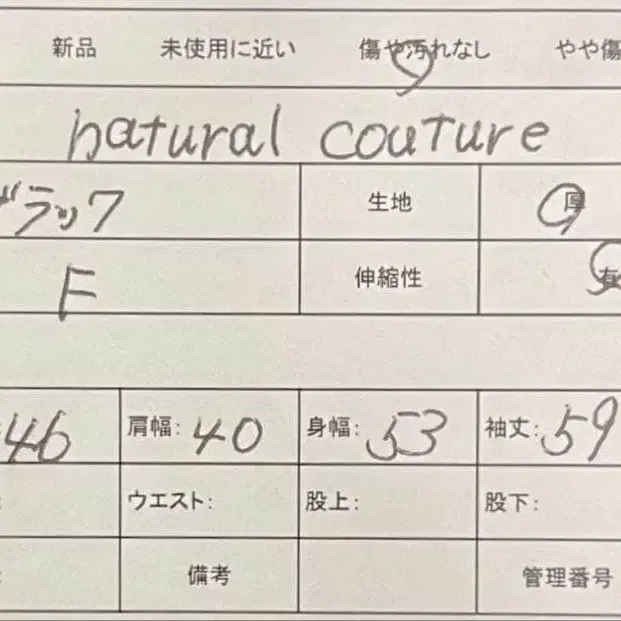 新品 未使用に近い 傷や汚れなし やや傷
natural couture
ブラック 生地 厚
F 伸縮性 有
46 肩幅: 40 身幅: 53 袖丈: 59
ウエスト: 股上: 股下:
備考 管理番号